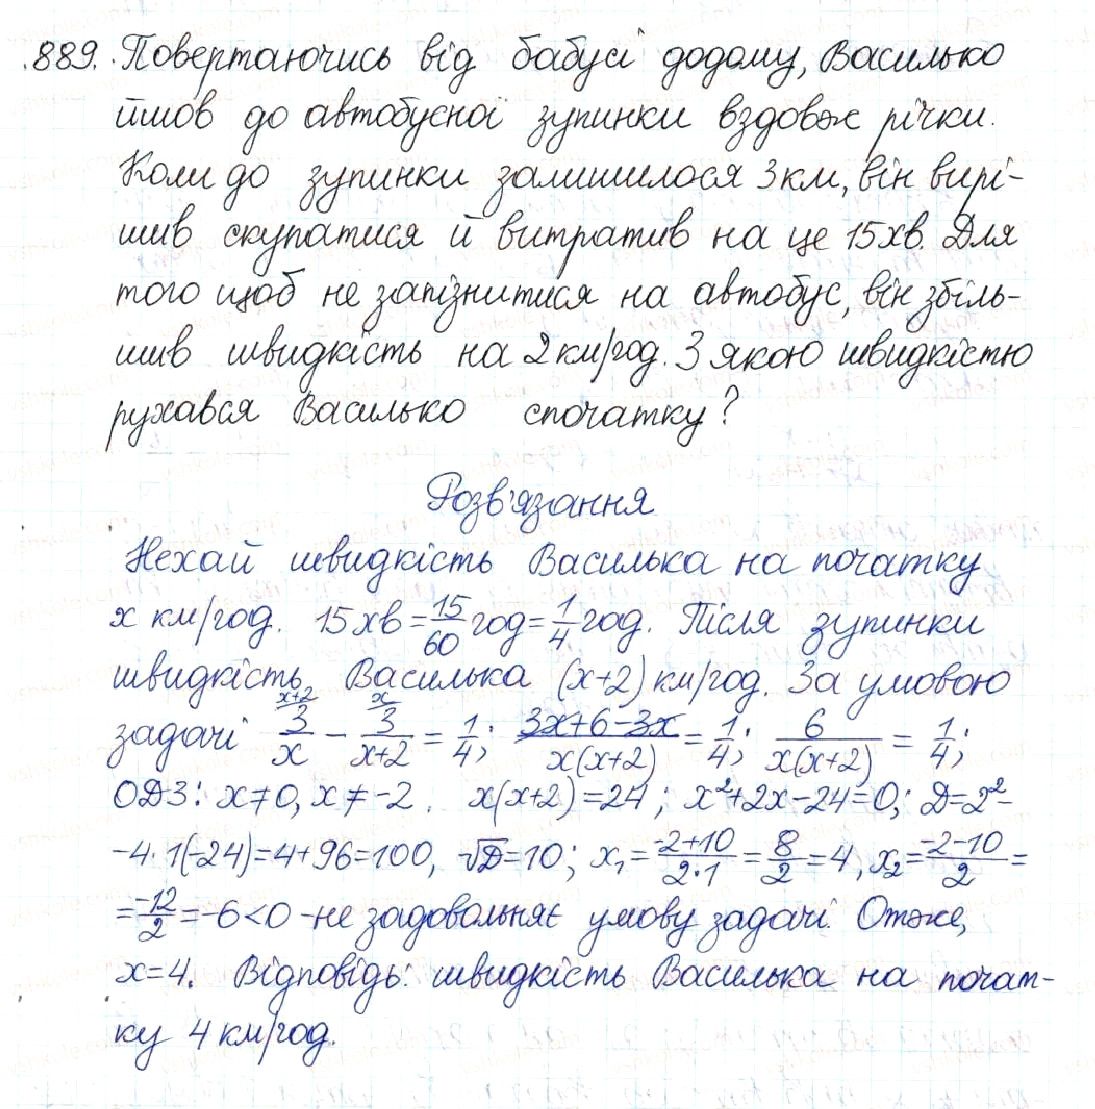 889. Повертаючись від бабусі додому, Василько
йшов до автобусної зупинки вздовж річки.
Коли до зупинки залишилося 3 км, він вирі-
шив скупатися й витратив на це 15 хв. Для
того щоб не запізнитися на автобус, він збіль-
шив швидкість на 2 км/год. З якою швидкістю
рухався Василько спочатку?
Розв'язання
Нехай швидкість Василька на початку
x км/год. 15 хв = 15/60 год = 1/4 год. Після зупинки
швидкість Василька (x+2) км/год. За умовою
задачі ^(x+2) 3/x - ^(x) 3/(x+2) = 1/4; (3x+6-3x)/(x(x+2)) = 1/4; 6/(x(x+2)) = 1/4;
ОДЗ: x≠0, x≠-2. x(x+2)=24; x²+2x-24=0; D=2²-
-4·1(-24)=4+96=100, √D=10; x₁=(-2+10)/(2·1)=8/2=4, x₂=(-2-10)/2=
=-12/2=-6<0 - не задовольняє умову задачі. Отже,
x=4. Відповідь: швидкість Василька на почат-
ку 4 км/год.